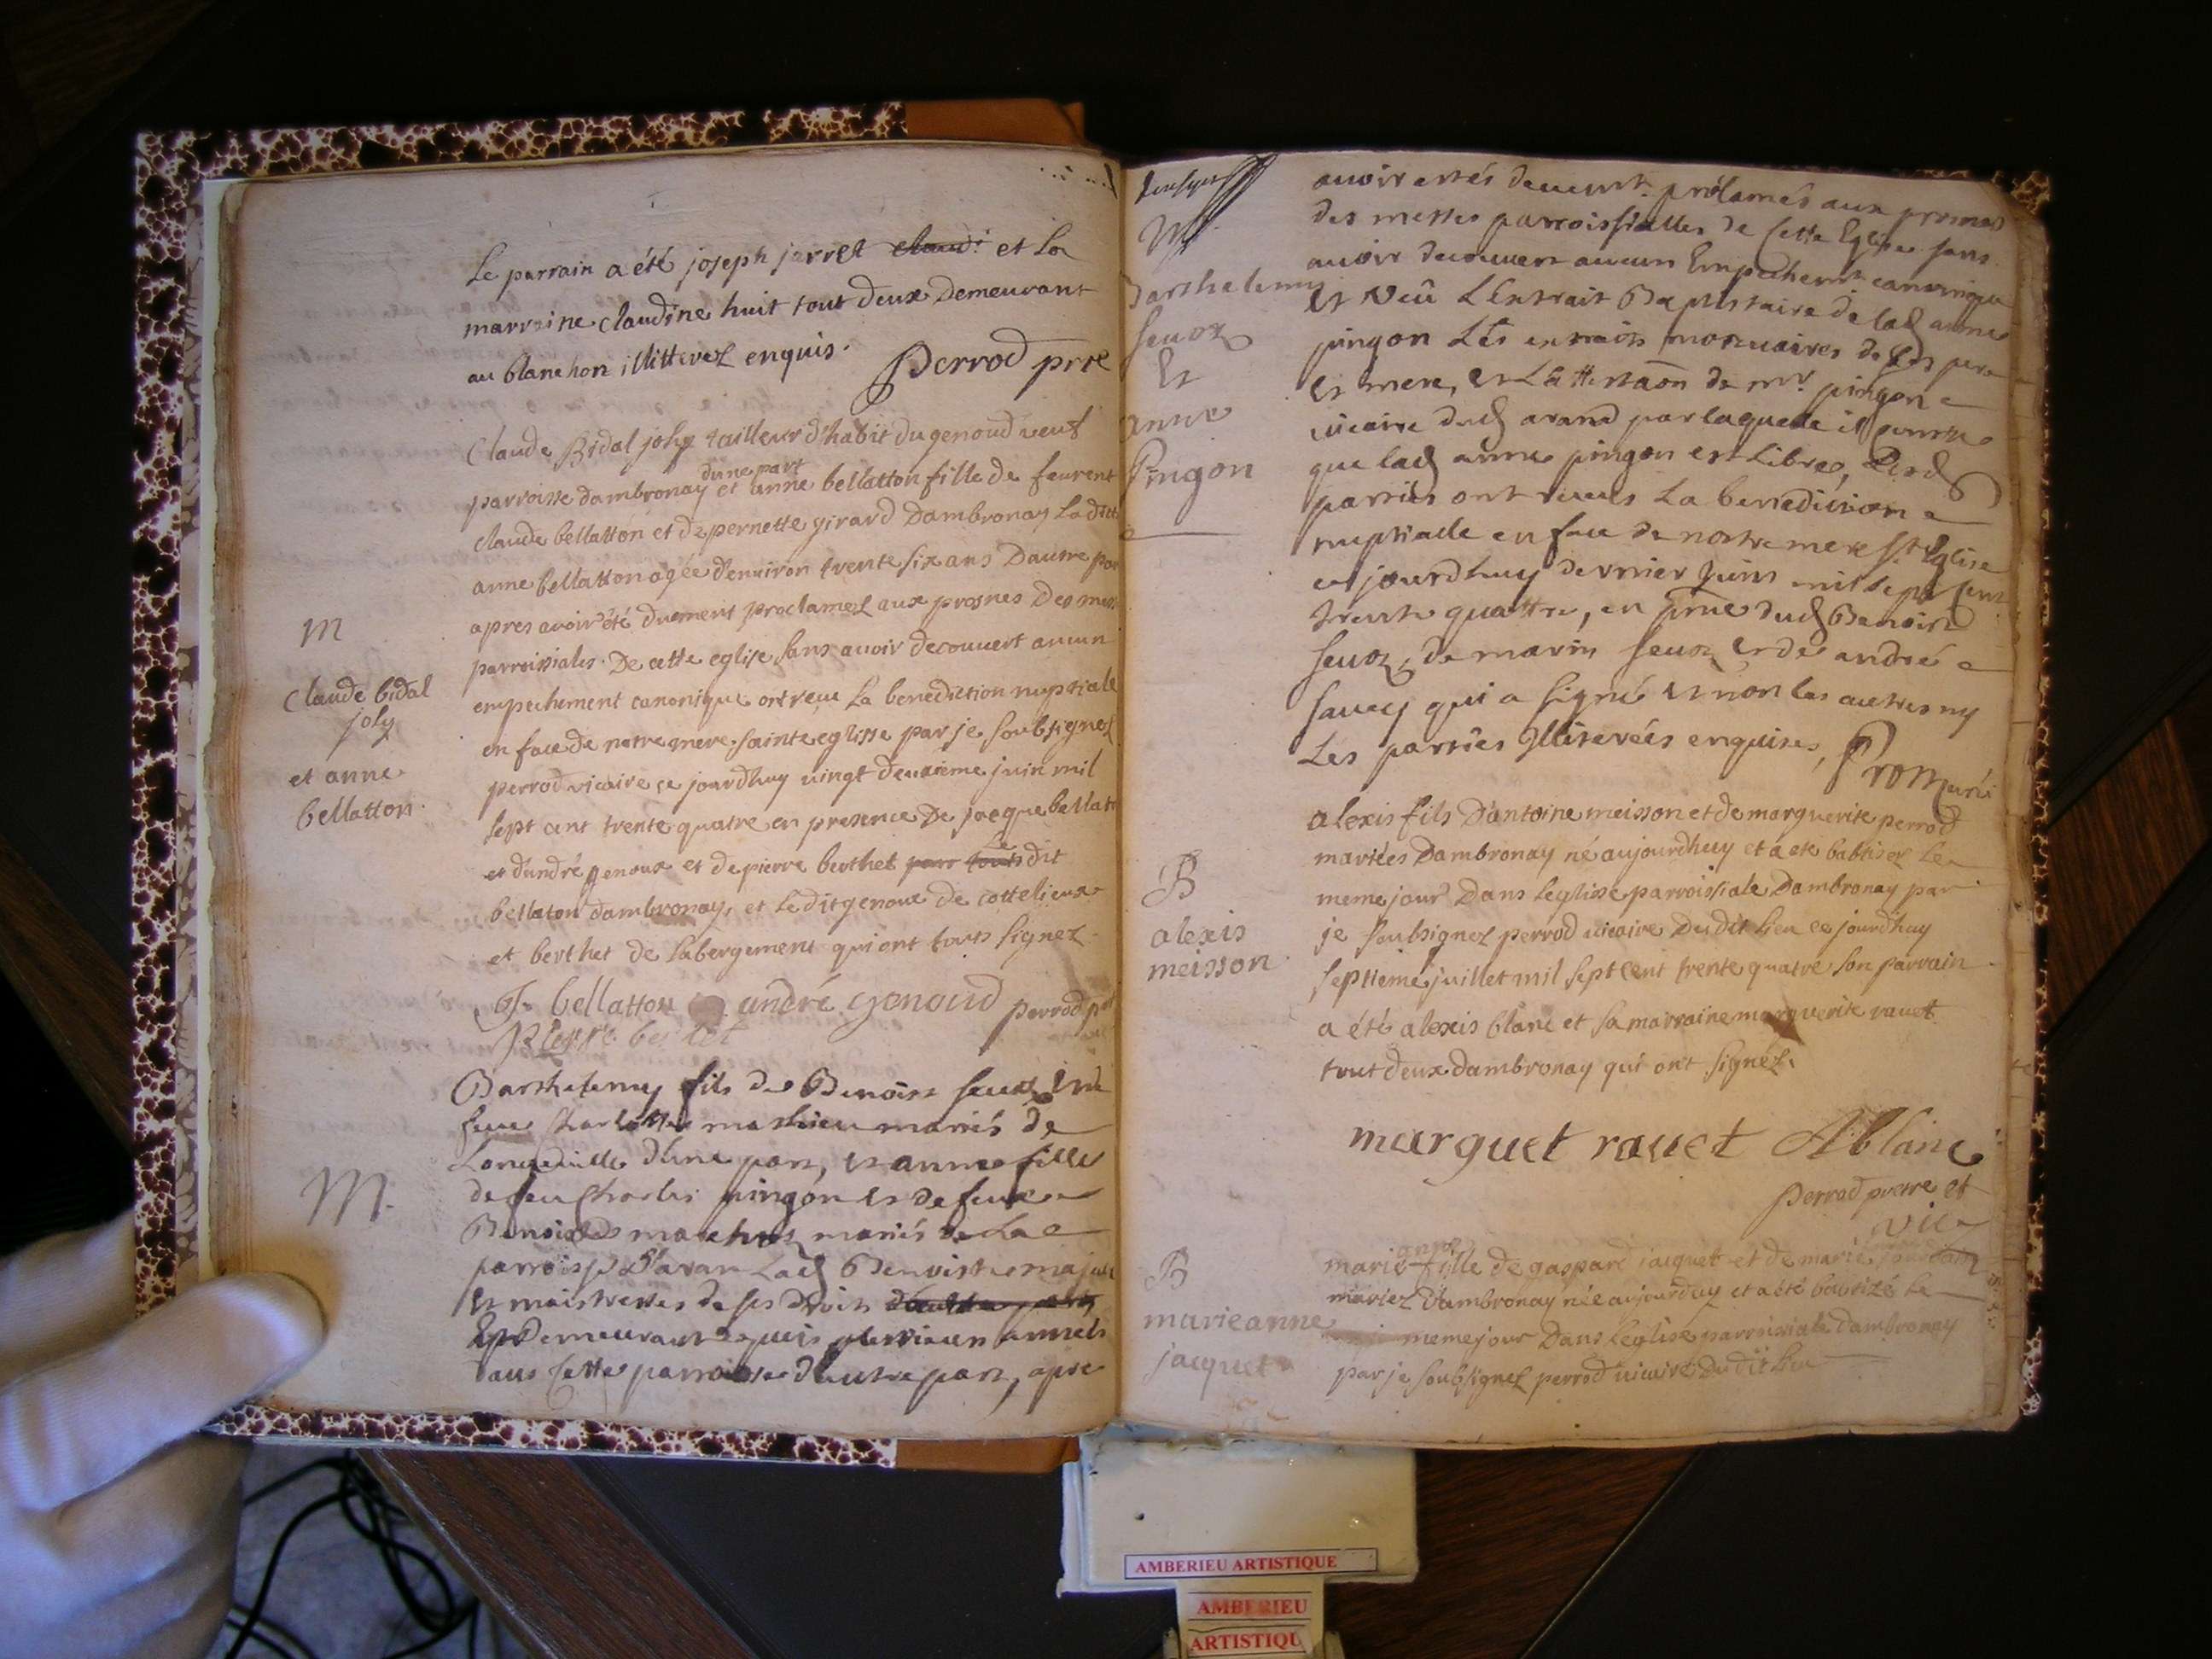 Le parrain a été joseph jarret claud: et La
marraine claudine huit tout deux Demeurant
au blanchon illitterez enquis.
Perrod prre
Claude Bidal joly tailleur d'habit du genoud veuf
dune part
parroisse dambronay et anne bellatton fille de feurent
claude bellatton et de pernette girard Dambronay La dite
anne bellatton agée d'enuiron trente six ans Dautre par
apres avoir été duement proclamez aux prosnes des mess
M
parroissiales De cette eglise sans avoir decouvert aucun
Claude bidal
joly
et anne
bellatton.
empechement canonique ont reçu La benediction nuptiale
en face de notre mere sainte eglisse par je soubsignez
perrod vicaire ce jourdhuy vingt deuxieme juin mil
sept cent trente quatre en presence De jacque bellato
et d'andré genoux et de pierre berthet Le dit
bellaton dambronay, et Le dit genoux de cottelieux
et berthet de Labergement qui ont touts signez
J. bellatton andré genoud perrod prt
pierre bertet
M.
Barthelemy fils de Benoist seuoz et de
feue Charlotte mathieu mariés de
Longeville d'une part, et anne fille
de feu Charles pingon et de feue
Benoiste mariés de La
parroisse D'aran Lad Benoiste majeure
et maistresse de ses droits d'autre part
demeurant depuis plusieurs années
dans Cette parroisse d'autre part, apre
M
Barthelemy
seuoz
Et
anne
Pingon
avoir estés deuemt. prôlamés aux prosnes
des messes parroissialles de Cette Eglise sans
auoir decouuert aucun Empechemt canonique
et Veû L'Extrait Baptistaire de lad anne
pingon Lés extraits mortuaires de ses pere
et mere, et L'attestâon de mr. pingon
vicaire dud arand par laquelle il conste
que lad anne pingon est Libre, Lesd
parties ont receus La benediction
nuptialle en face de nostre mere Ste Eglise
ce jourdhuy dernier Juin mil sept cent
trente quattre, en prñe dud Benoist
seuoz, de marin seuoz et de andré
sauey qui a signé et non les autres ny
Les parties Illiterées enquises,
Prost Curé
B
alexis
meisson
alexis fils D'antoine meisson et de marguerite perrod
mariées Dambronay né aujourdhuy et a eté babtisez Le
meme jour Dans Leglise parroissiale Dambronay par
je soubsignez perrod vicaire Dudit Lieu ce jourdhuy
septieme juillet mil sept cent trente quatre son parrain
a été alexis blanc et sa marraine marguerite rauet
tout deux dambronay qui ont signéz.
marguet rauet A blanc
perrod prttre et
vic
B
marieanne
jacquet
anne
marie fille de gaspard jacquet et de marie
mariez Dambronay née aujourduy et a été babtizé Le
meme jour Dans Leglise parroissiale Dambronay
par je soubsignez perrod vicaire Dudit Lieu
AMBERIEU ARTISTIQUE
AMBERIEU
ARTISTIQU